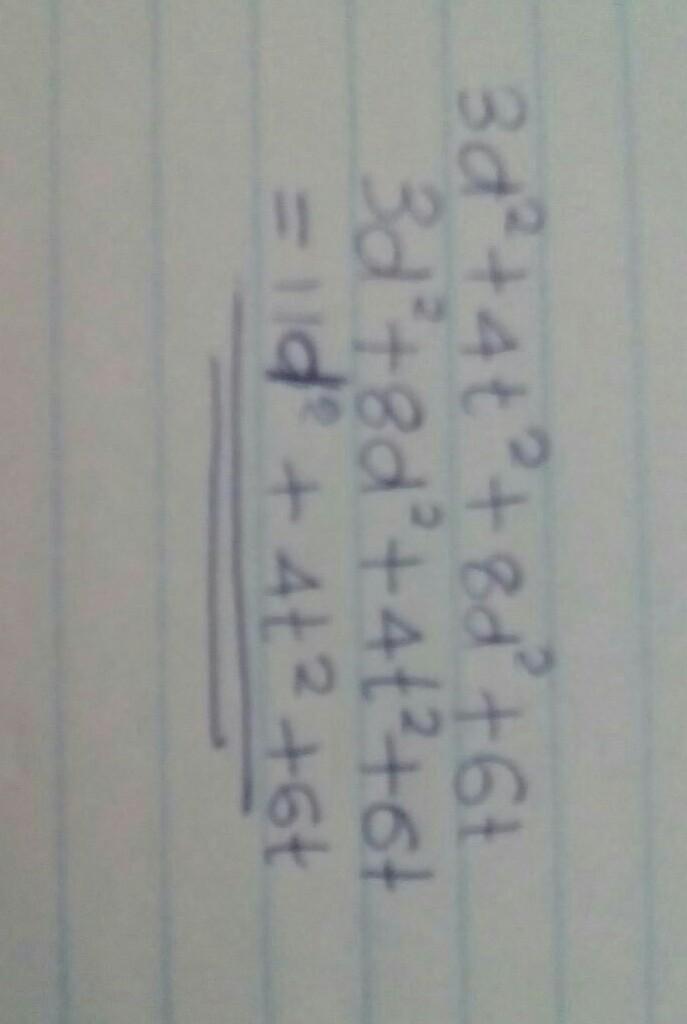 3d²+4t²+8d²+6t
3d²+8d²+4t²+6t
=11d²+4t²+6t